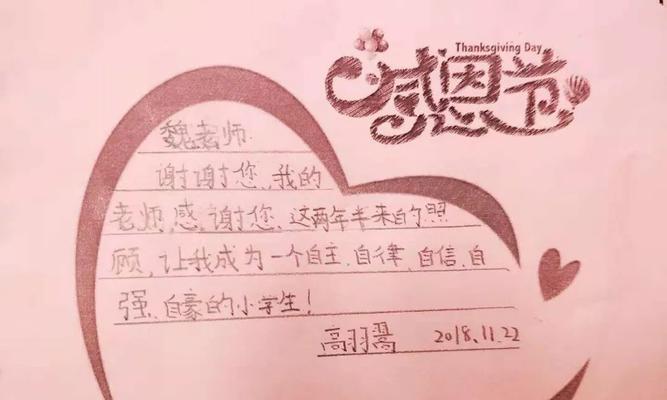 Thanksgiving Day
感恩节
魏老师
谢谢您、我的
老师,感谢您、这两年半来的照
顾,让我成为一个自主、自律、自信、自
强、自豪的小学生!
高羽翯 2018.11.22